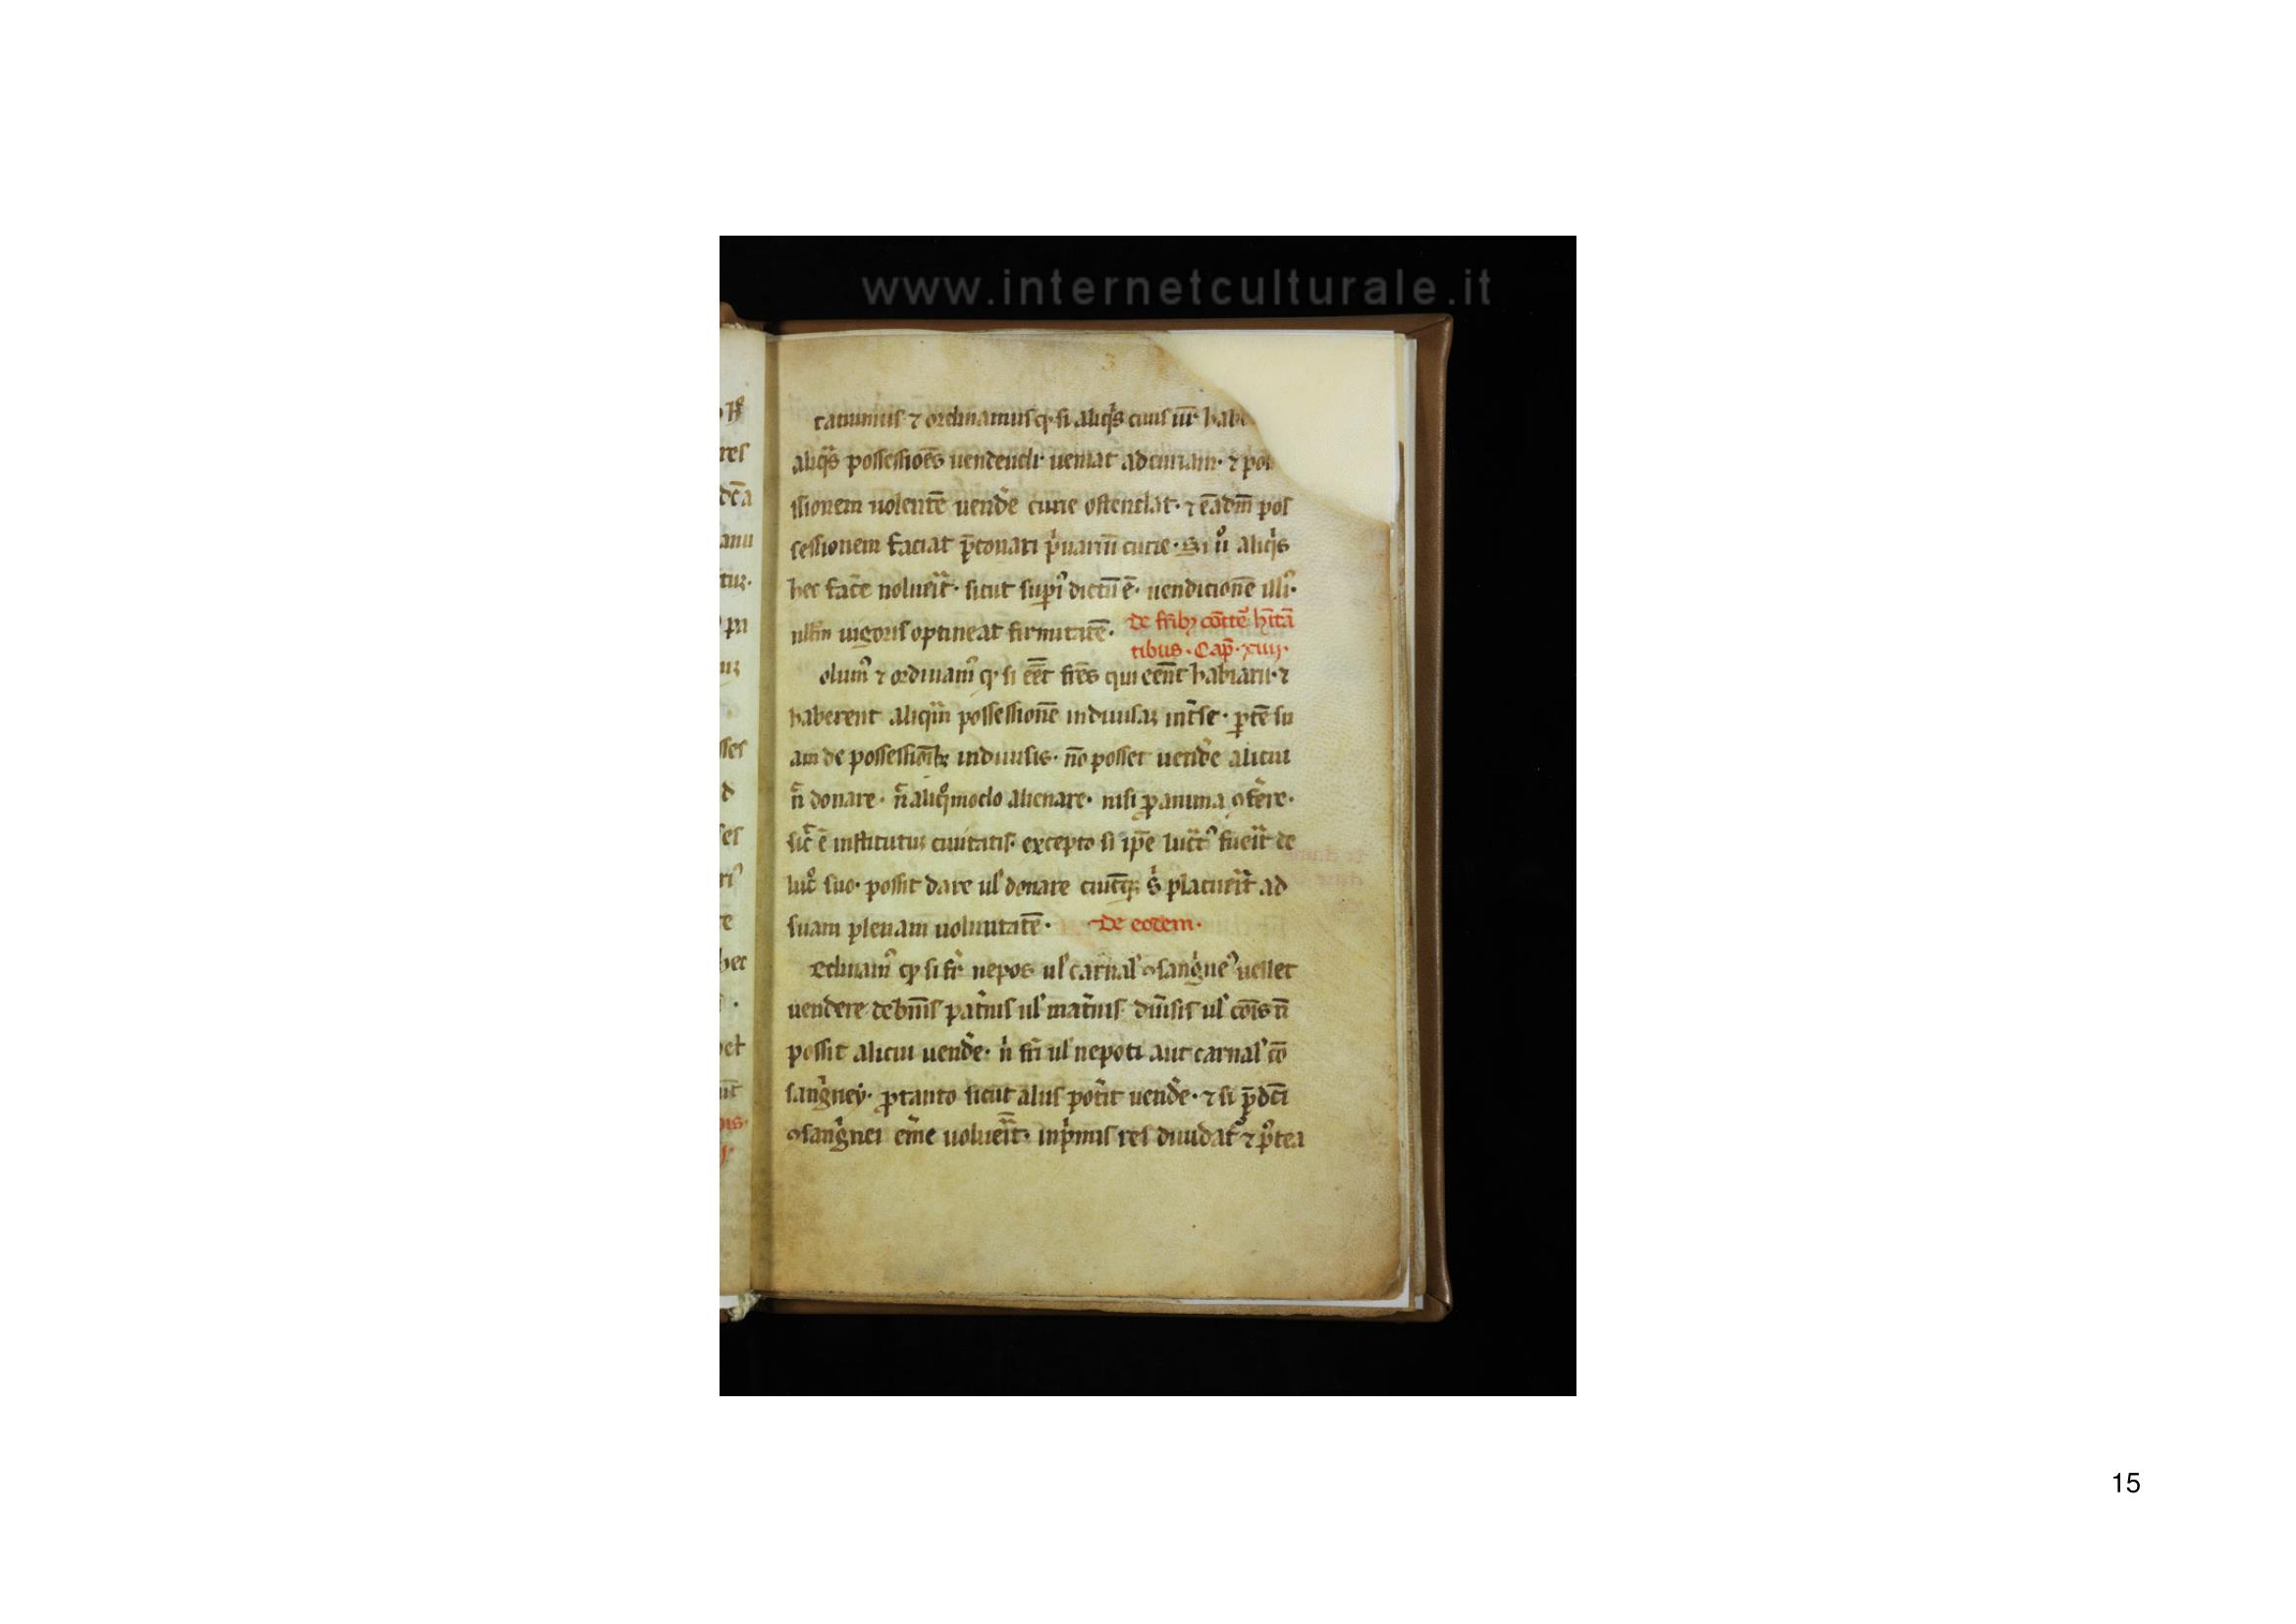 www.internetculturale.it
3
tatuimus ⁊ ordinamus ꝙ si aliqͥs ciuis nr̄ habe
aliqͣs possessiōes uendendi· ueniat ad curiam· ⁊ pos
ssionem uolentē uendẽ curie ostendat· ⁊ eādm̄ pos
sessionem faciat p̄conari pͥuarū curie· Si uͦ aliqͥs
hec facẽ noluerit· sicut supiꝰ dictū ē· uendicionē illiꝰ
nullm̄ uigoris optineat firmitatē·
de fr̄ibꝫ cōītẽ hītā
tibus · Cap̄ · xiiij·
olumꝰ ⁊ ordinamꝰ ꝙ si eēt fr̄es qui eēnt habiati· ⁊
haberent aliqͣm possessionē indiuisaꝫ int̃ se· ꝑtē su
am de possessiōibꝫ indiuisis· nō posset uendẽ alicui
nͨ donare· nͨ aliqͦ modo alienare· nisi ꝓ anima ꝯferre·
sicͭ ē institutuꝫ ciuitatis· excepto si ip̄e lucͣtꝰ fueit de
lucͦ suo· possit dare ul donare cuicūqꝫ sͥ placueit ad
suam plenam uoluntatē·
de eodem·
rdinamꝰ ꝙ si fr̄ nepos ul carnal ꝯsangͥneꝰ uellet
uendere de bōis pat̃nis ul mat̃nis diuisis ul cōis nō
possit alicui uendẽ· nͥ fr̄i ul nepoti aut carnal cō
sangͥney· ꝓ tanto sicut alus pot̃it uendẽ· ⁊ si p̄dc̄i
ꝯsangͥnei em̃e uolueit· inpͥmis res diuidatͬ ⁊ pͦtea
15